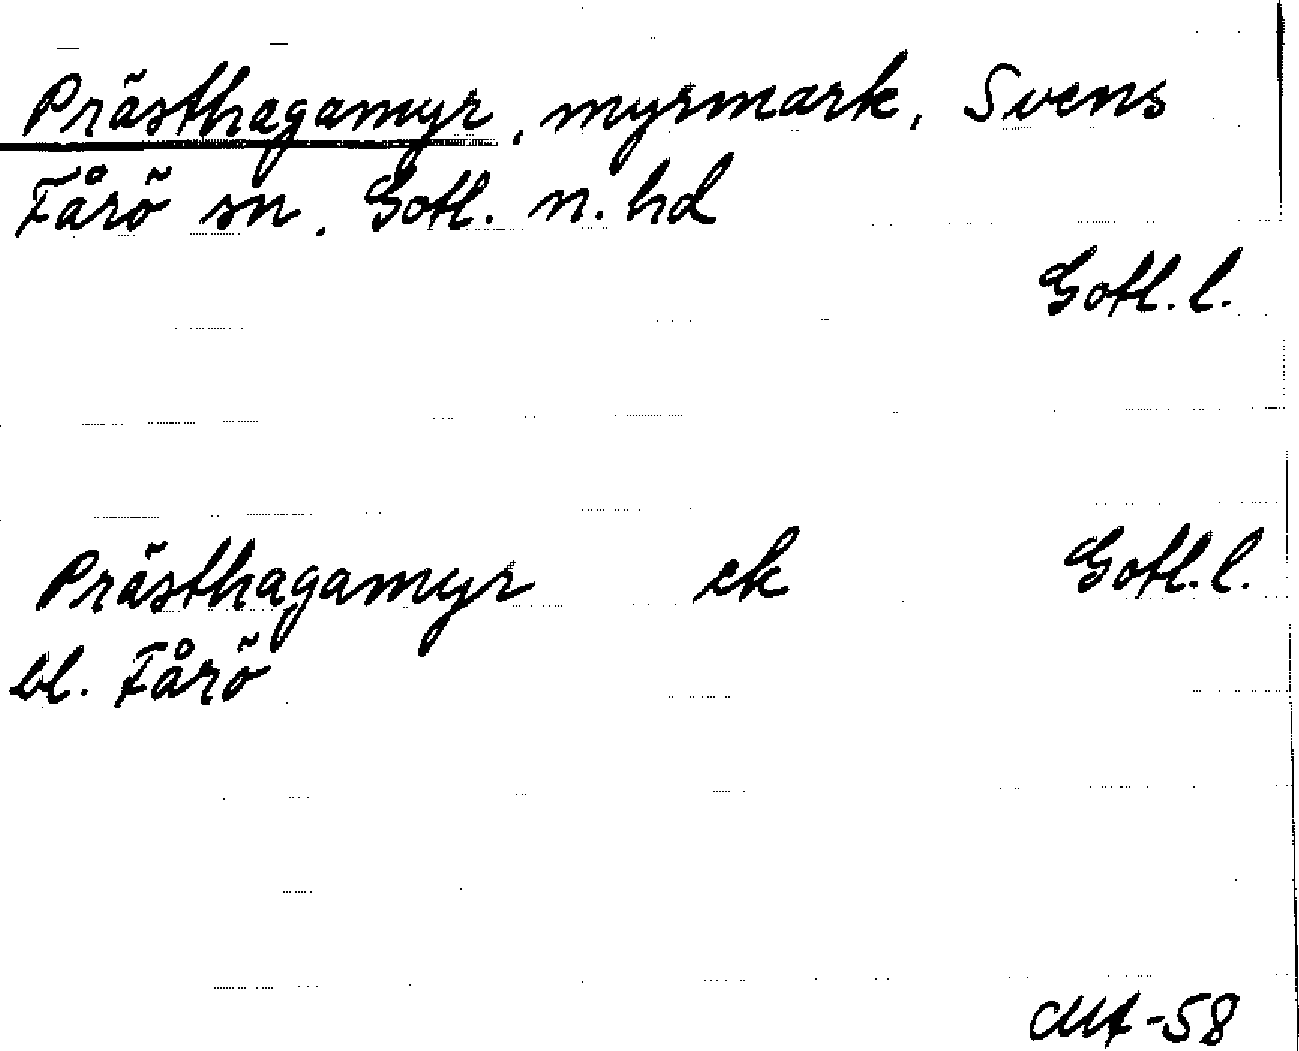 Prästhagamyr, myrmark, Svens
Fårö sn. Gotl. n. hd
Gotl. l.
Prästhagamyr ek Gotl. l.
bl. Fårö
-58